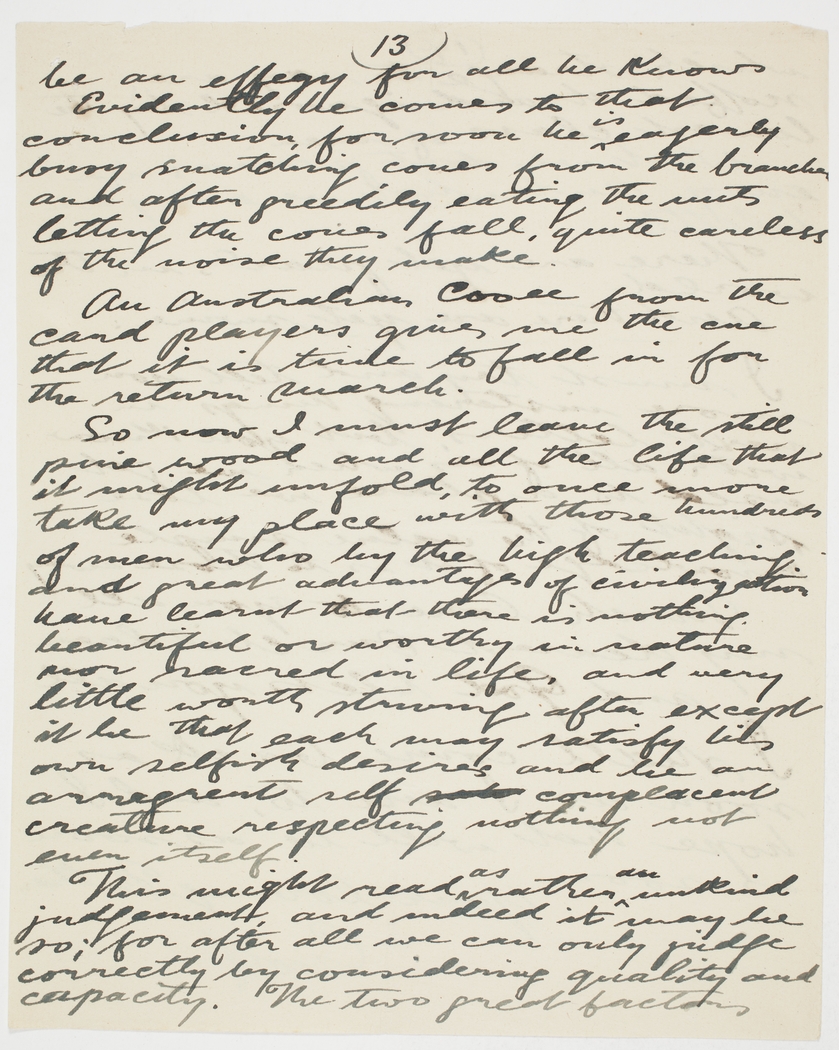 13
be an effegy for all he knows
Evidently he comes to that
conclusion, for soon he is eagerly
busy snatching cones from the branches
and after greedily eating the nuts
letting the cones fall, quite careless
of the noise they make.
An Australian Cooee from the
card players gives me the cue
that it is time to fall in for
the return march.
So now I must leave the still
pine wood and all the life that
it might unfold, to once more
take my place with those hundreds
of men who by the high teaching
and great advantages of civilization
have learnt that there is nothing
beautiful or worthy in nature
nor sacred in life, and very
little worth striving after except
it be that each may satisfy his
own selfish desires and be an
arregrent self complacent
creature respecting nothing not
even itself.
This might read as rather an unkind
judgement, and indeed it may be
so; for after all we can only judge
correctly by considering quality and
capacity. The two great factors